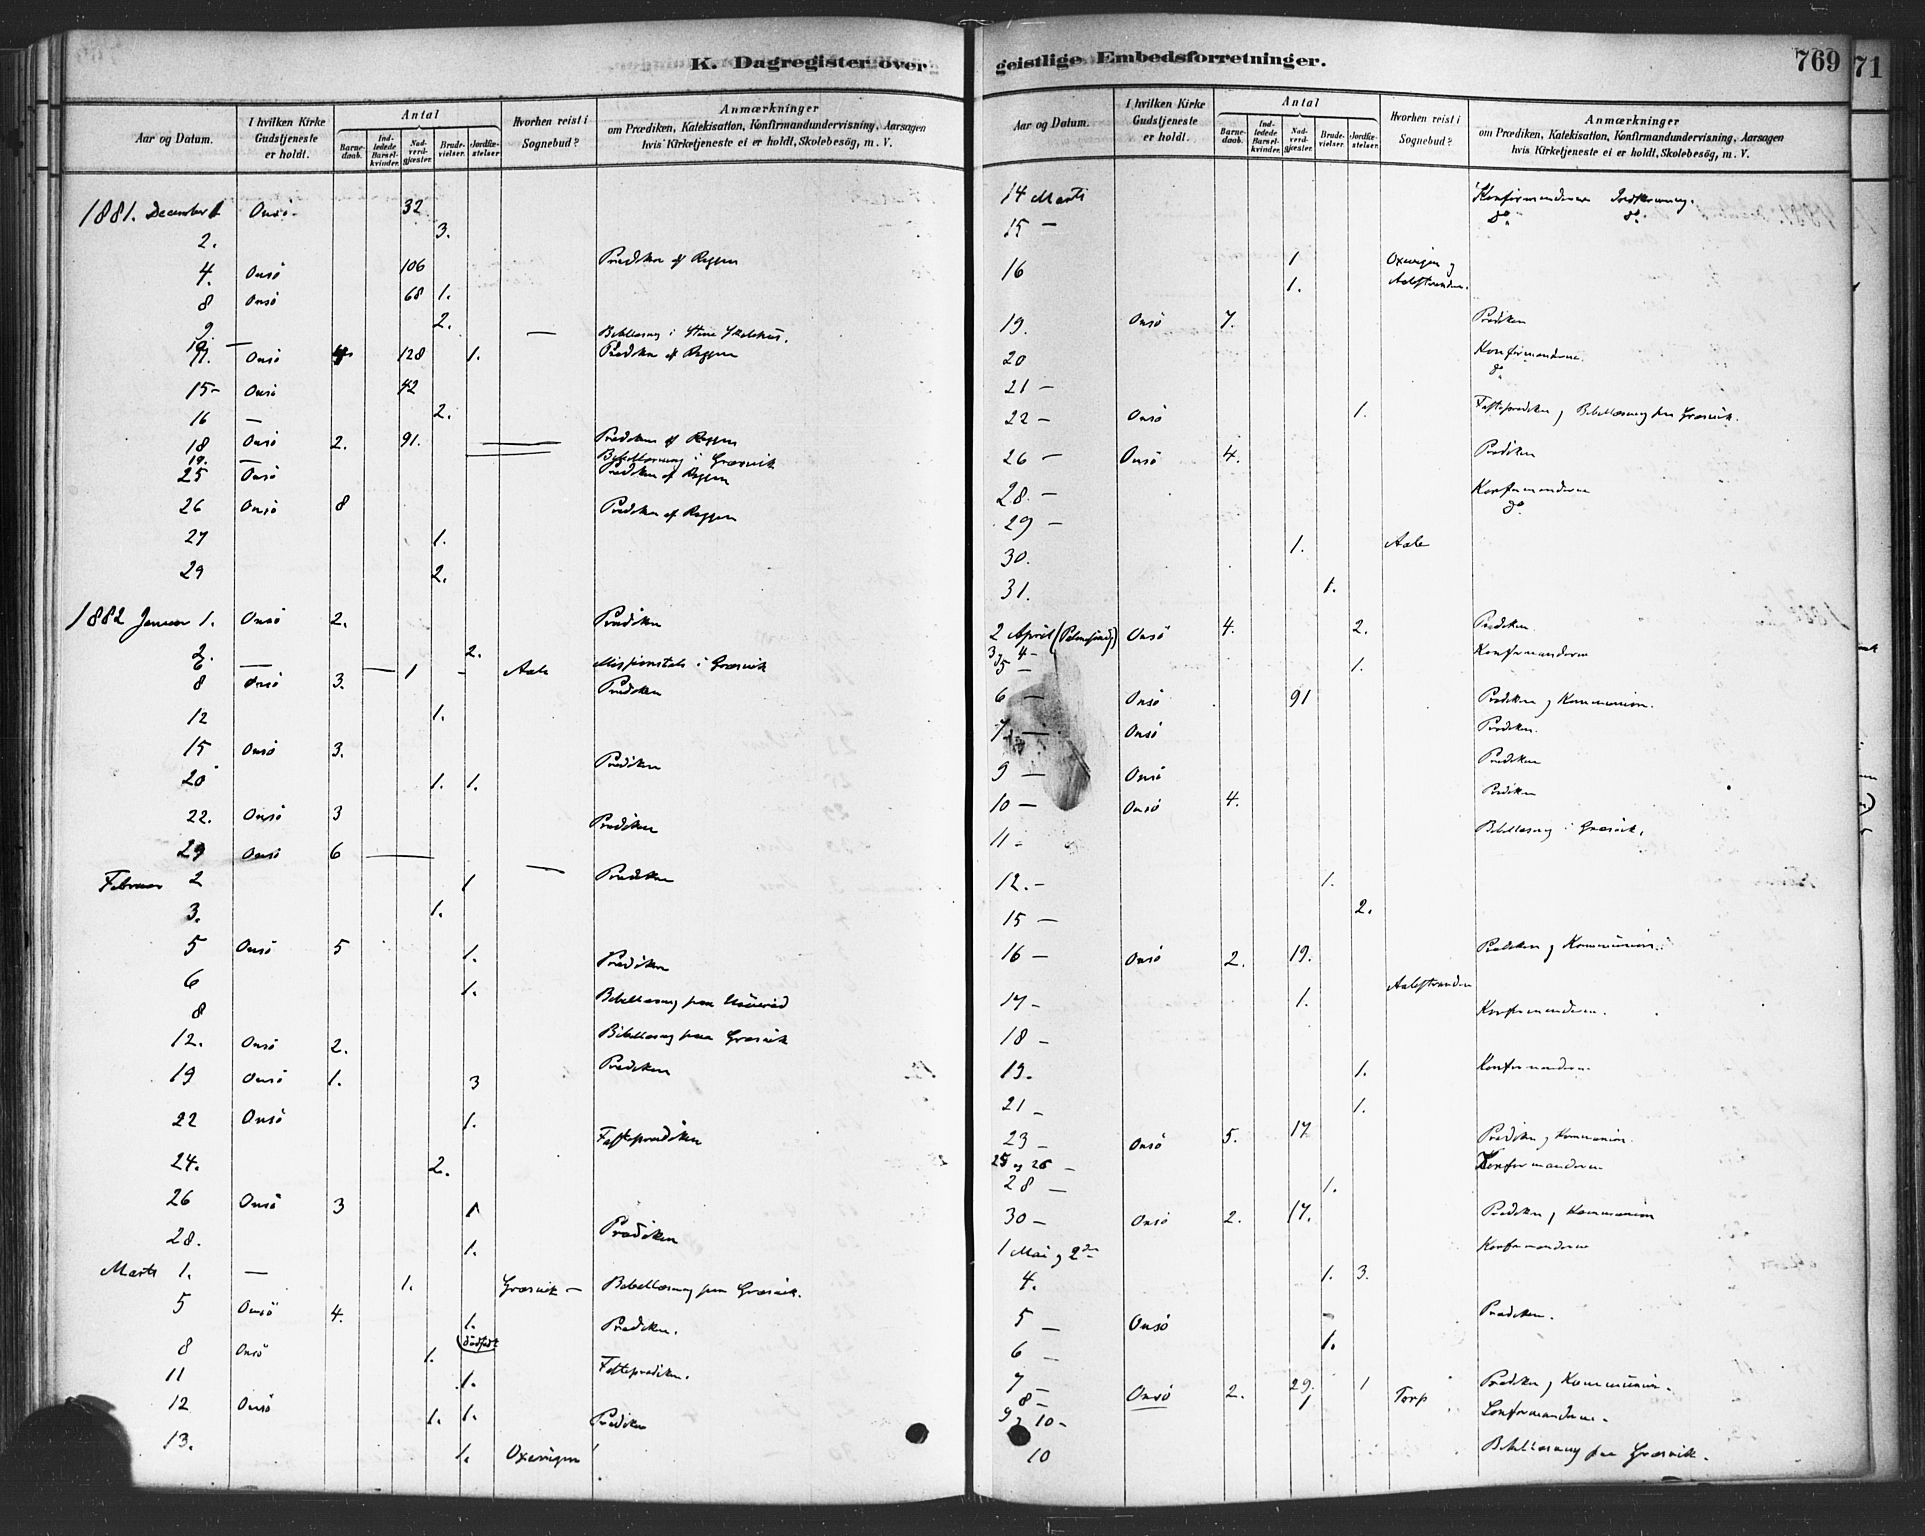 K. Dagregister over
Aar og Datum. I hvilken Kirke Gudstjeneste er holdt. Antal Barne-daab. Ind-ledede Barsel-kvinder. Nad-verd-gjæster. Brude-vielser. Jordfæ-stelser Hvorhen reist i Sognebud? Anmærkninger om Prædiken, Katekisation, Konfirmandundervisning, Aarsagen hvis Kirketjeneste ei er holdt, Skolebesög, m. V.
1881. December 1. Onsö. 32
2. 3.
4. Onsö 106 Prædiken af
8 Onsö 68 1.
9. 2.
10. — — Bibellæsning i
11. Onsö 128 1. Prædiken af
15 - Onsö 42
16 — 2.
18 Onsö 2. 91. — Prædiken af
19. — — Bibellæsning i Græsvik
25 Onsö Prædiken af
26 Onsö 8 Prædiken af
27 1.
29 2.
1882 Januar 1. Onsö 2. Prædiken
2. 2.
6 — Aale Missionstale i Græsvik
8 Onsö 3. — 1 - Prædiken
12 1.
15 Onsö 3.
20 1. 1. Prædiken
22. Onsö 3 Prædiken
29 Onsö 6 —
Februar 2 1 — Prædiken
3. 1.
5 Onsö 5 1. Prædiken
6 1.
8 Bibellæsning paa
12. Onsö 2. Bibellæsning paa Græsvik
19 Onsö 1. 3 Prædiken
22 Onsö 1. Fasteprædiken
24. 2.
26 Onsö 3 1
28. 1. Prædiken
Marts 1. — 1. Græsvik — Bibellæsning paa Græsvik.
5 Onsö 4. 1. Prædiken.
(dödfödt
8 Onsö 1. Fasteprædiken.
11 1.
12 Onsö 1. 1. Prædiken
13. 1. Oxevigen
geistlige Embedsforretninger. 769
71
Aar og Datum. I hvilken Kirke Gudstjeneste er holdt. Antal Barne-daab. Ind-ledede Barsel-kvinder. Nad-verd-gjæster. Brude-vielser. Jordfæ-stelser. Hvorhen reist i Sognebud? Anmærkninger om Prædiken, Katekisation, Konfirmandundervisning, Aarsagen hvis Kirketjeneste ei er holdt, Skolebesög, m. V.
14 Marts Konfirmanderne Indskrivning.
15 — do. do.
16 1 Oxevigen og
1. Aalestranden.
19. Onsö 7. Prædiken
20 Konfirmanderne.
21 — do.
22 — Onsö 1. Fasteprædiken og Bibellæsning paa Græsvik.
26 — Onsö 4. Prædiken
28. — Konfirmanderne
29 — do.
30. 1. Aale
31. 1.
2 April (Palmesönd.) Onsö 4. 2. Prædiken
3, 4 — Konfirmanderne
5 — 1.
6 — Onsö 91 Prædiken og Kommunion.
7 — Onsö Prædiken.
9 — Onsö Prædiken
10 — Onsö 4. Prædiken
11 - Bibellæsning i Græsvik.
12. — 1.
15 — 2.
16 — Onsö 2. 19. Prædiken og Kommunion.
17 - 1. Aalestranden Konfirmanderne.
18 —
19. 1. Konfirmanderne.
21 - 1.
23 — Onsö 5. 17 Prædiken og Kommunion.
25 og 26 — Konfirmanderne
28 — 1.
30 — Onsö 2. 17. Prædiken og Kommunion
1 Mai og 2den Konfirmanderne
4. 1. 3.
5 — Onsö Prædiken.
6 — 1.
7 — Onsö 2. 29. 1 Prædiken og Kommunion.
8 — 1 Torp
9 og 10 — Konfirmanderne.
10 Bibellæsning paa Græsvik.